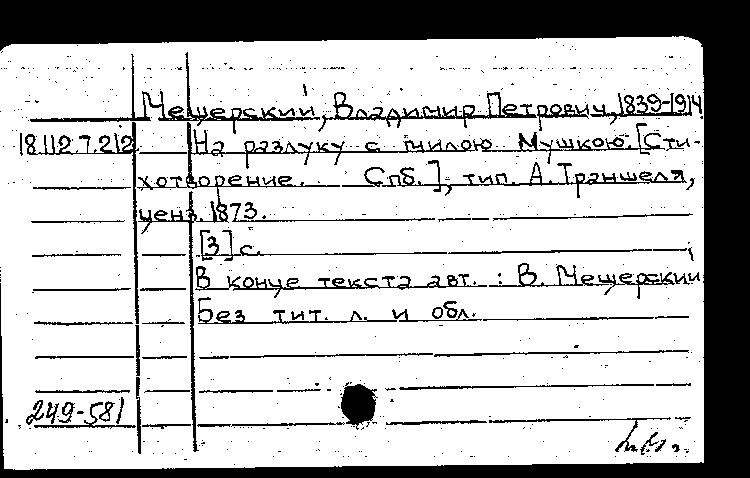 Мещерский, Владимир Петрович, 1839-1914
18.112.7.212 На разлуку с милою Мушкою. [Сти-
хотворение. Спб.], тип. А. Траншеля,
ценз. 1873.
[3] с.
В конце текста авт. : В. Мещерский
Без тит. л. и обл.
249-581